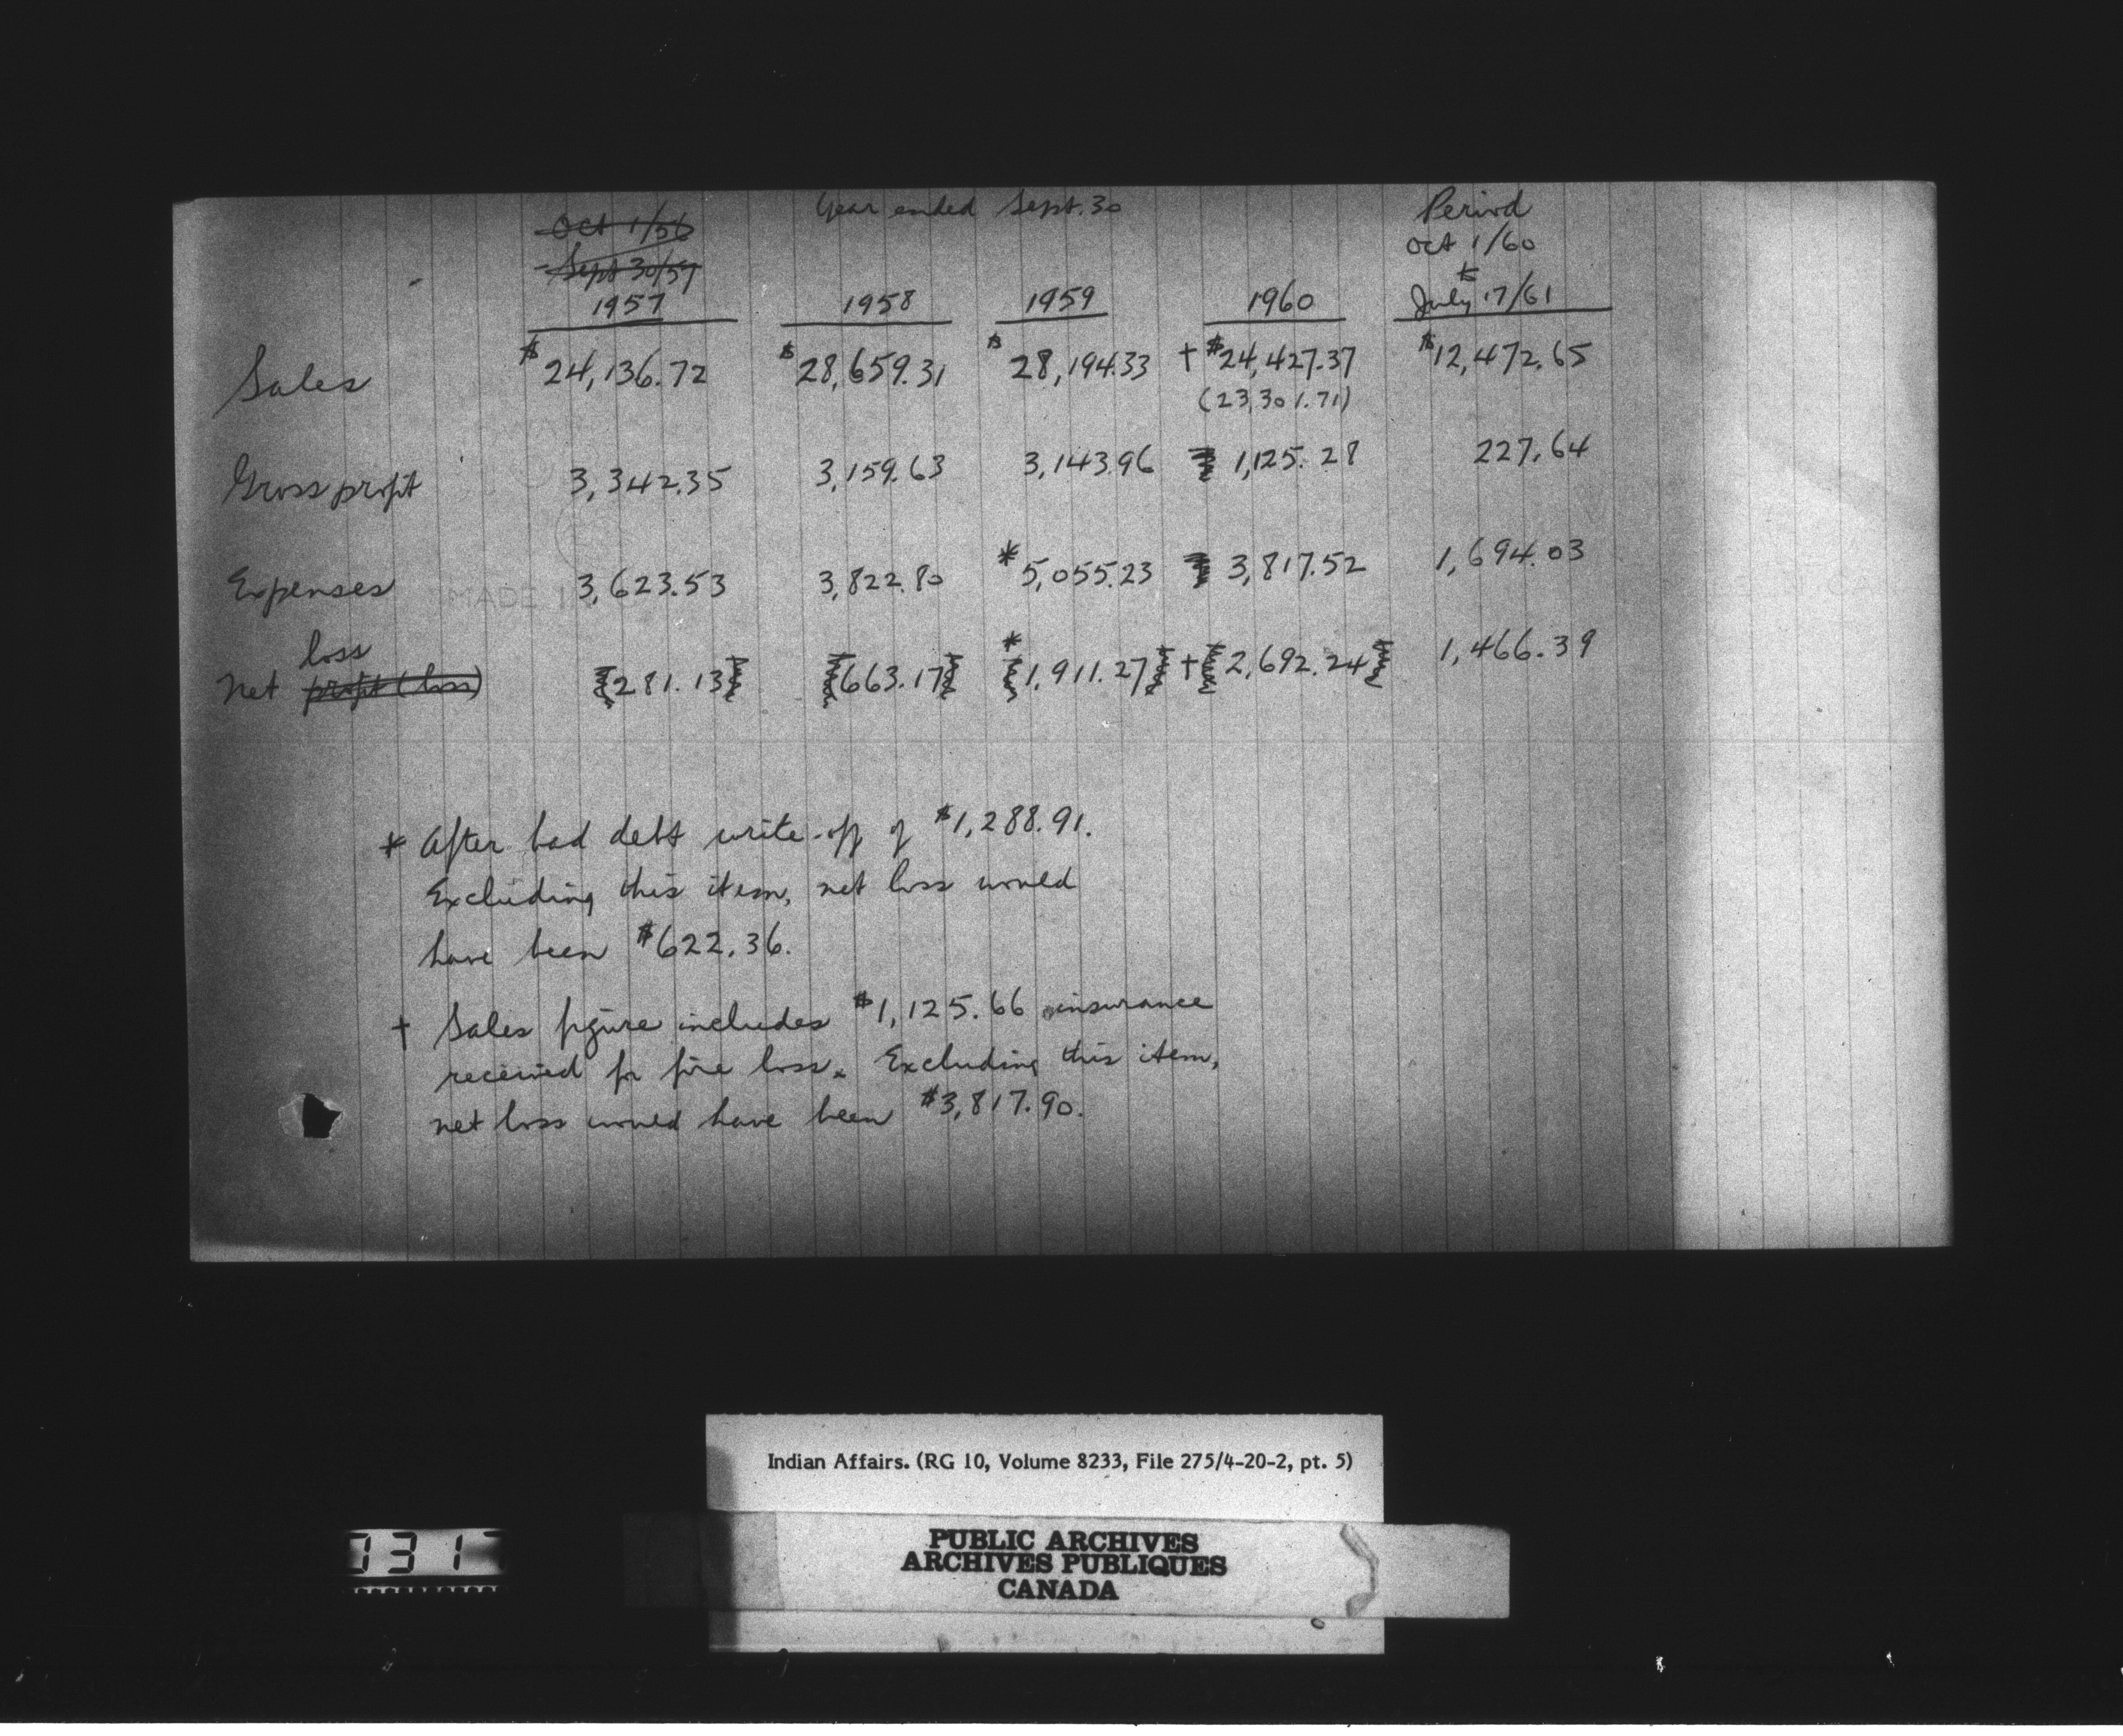 Oct 1/56 Year ended Sept. 30 Period
- Sept 30/57 Oct 1/60
to
1957 1958 1959 1960 July 17/61
Sales $24,136.72 $28,659.31 $28,194.33 † $24,427.37 $12,472.65
(23,301.71)
Gross profit 3,342.35 3,159.63 3,143.96 1,125.28 227.64
Expenses 3,623.53 3,822.80 * 5,055.23 3,817.52 1,694.03
loss
Net profit (loss) 281.13 663.17 * 1,911.27 † 2,692.24 1,466.39
* After bad debt write-off of $1,288.91.
Excluding this item, net loss would
have been $622.36.
† Sales figure includes $1,125.66 insurance
received for fire loss. Excluding this item,
net loss would have been $3,817.90.
MADE IN
Indian Affairs. (RG 10, Volume 8233, File 275/4-20-2, pt. 5)
PUBLIC ARCHIVES
ARCHIVES PUBLIQUES
CANADA